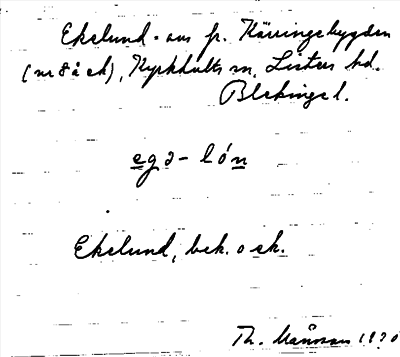 Ekelund - avs fr. Käringebygden
(nr 8 å ek), Kyrkhults sn, Listers hd.
Blekinge l.
ega - lón
Ekelund, bek. o ek.
Th. Månsson 1970